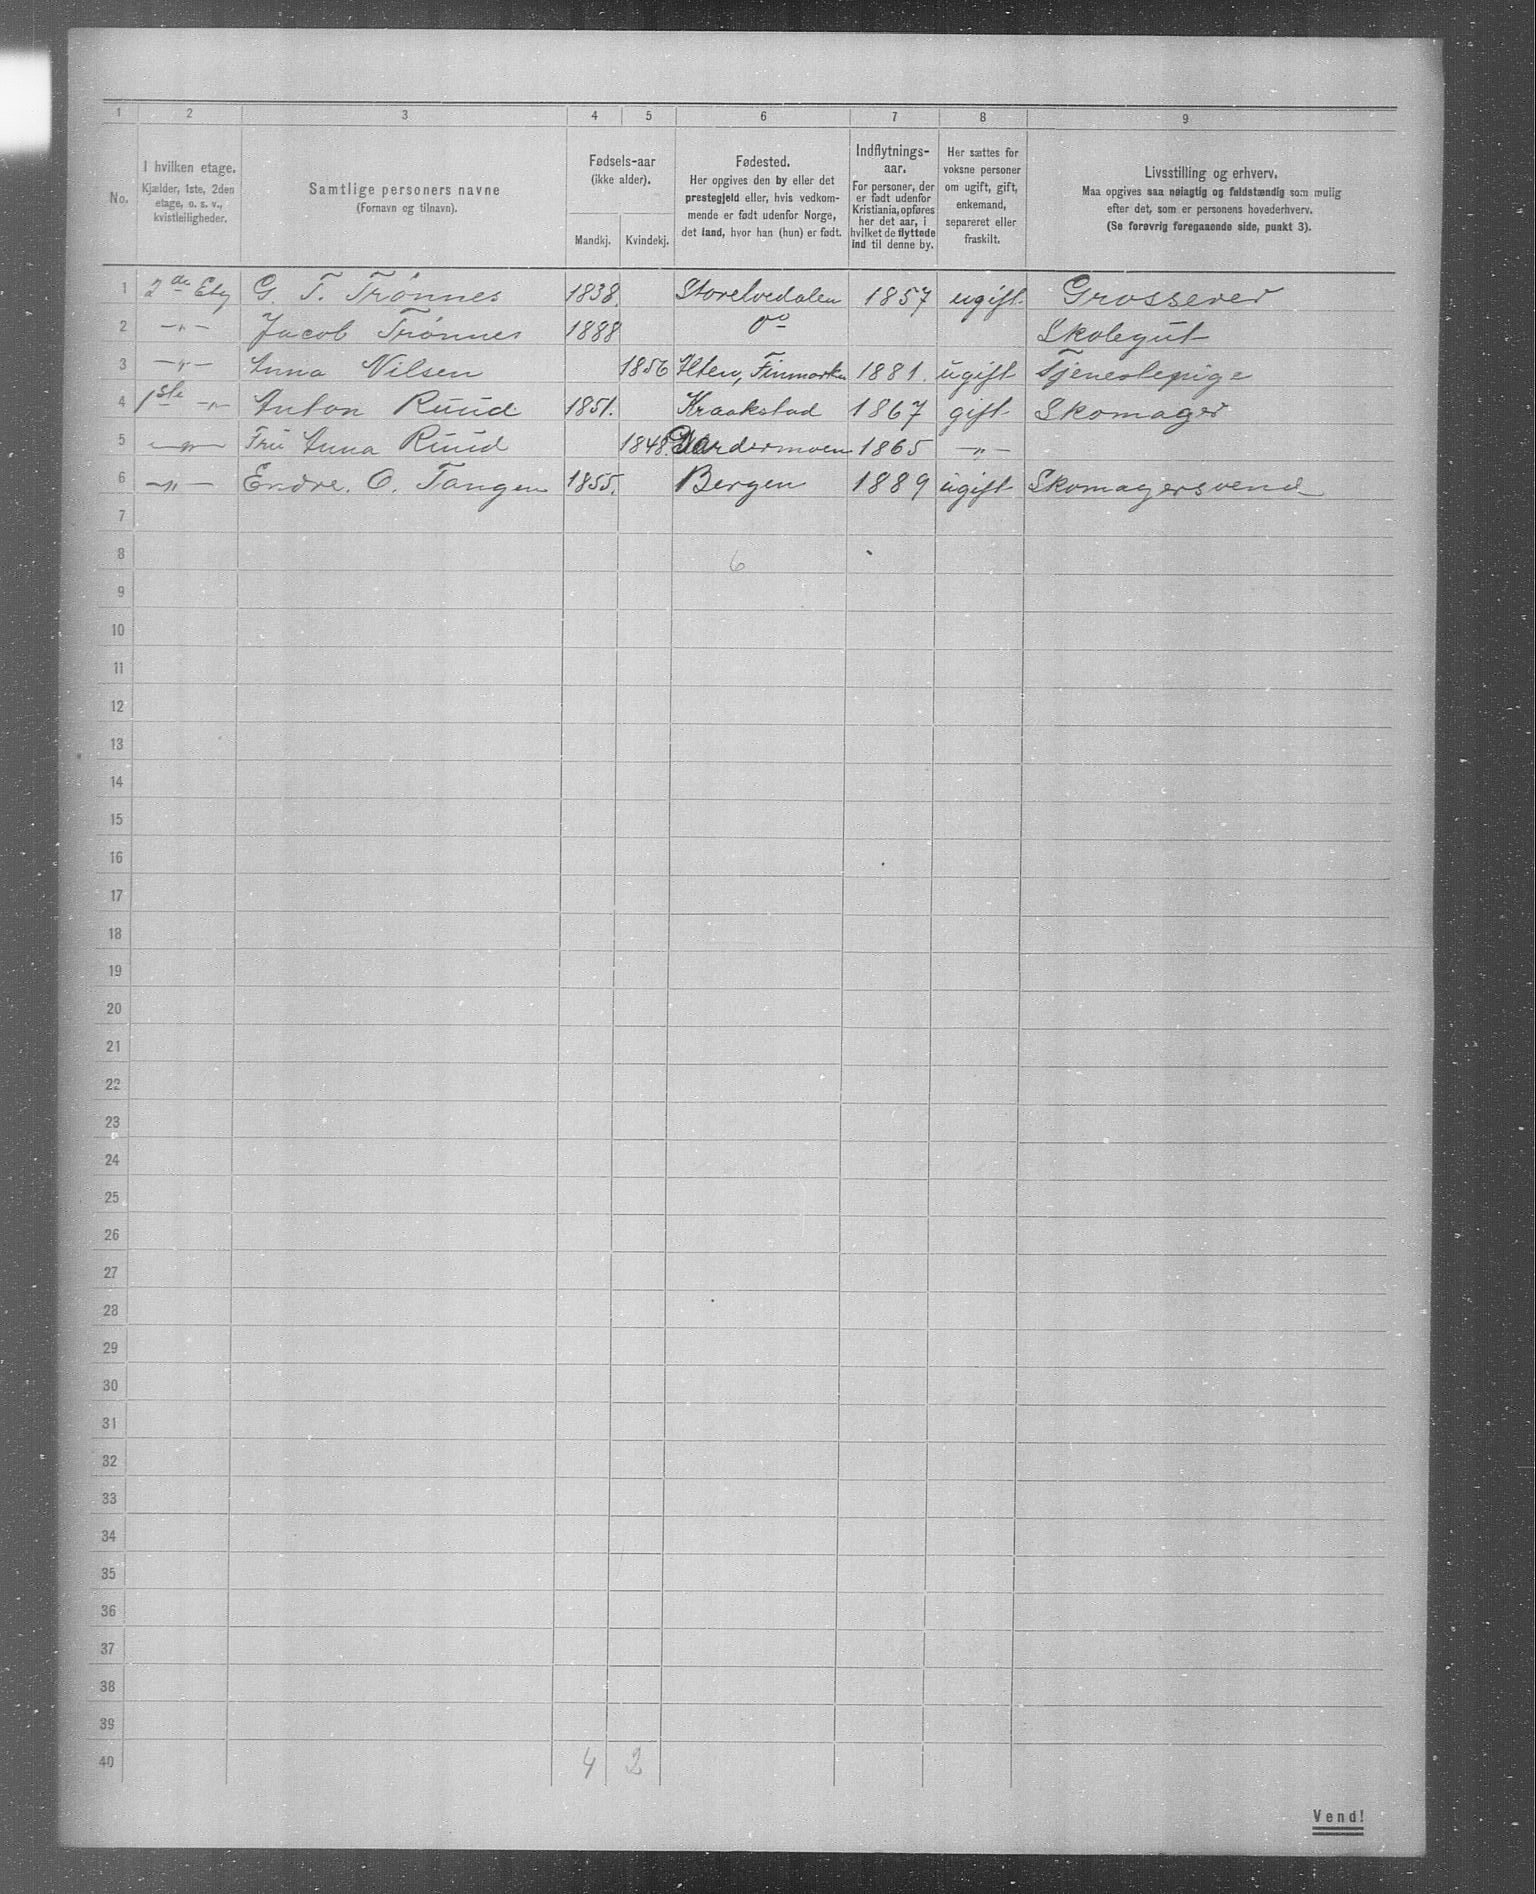 1 2 3 4 5 6 7 8 9
No.
I hvilken etage.
Kjælder, 1ste, 2den
etage, o. s. v.,
kvistleiligheder.
Samtlige personers navne
(Fornavn og tilnavn).
Fødsels-aar
(ikke alder).
Mandkj. Kvindekj.
Fødested.
Her opgives den by eller det
prestegjeld eller, hvis vedkom-
mende er født udenfor Norge,
det land, hvor han (hun) er født.
Indflytnings-
aar.
For personer, der
er født udenfor
Kristiania, opføres
her det aar, i
hvilket de flyttede
ind til denne by.
Her sættes for
voksne personer
om ugift, gift,
enkemand,
separeret eller
fraskilt.
Livsstilling og erhverv.
Maa opgives saa nøiagtig og fuldstændig som mulig
efter det, som er personens hovederhverv.
(Se forøvrig foregaaende side, punkt 3).
1 2den Etg G. T. Trønnes 1838. Storelvedalen 1857 ugift Grosserer
2 —"— Jacob Trønnes 1888 Do Skolegut
3 —"— Anna Nilsen 1856 Finmarken 1881. ugift Tjenestepige
4 1ste —"— Anton Ruud 1851. Kraakstad 1867 gift Skomager
5 —"— Fru Anna Ruud 1848. Gardermoen 1865 —"—
6 —"— Endre. O. Tangen 1855. Bergen 1889 ugift Skomagersvend
7
8 6
9
10
11
12
13
14
15
16
17
18
19
20
21
22
23
24
25
26
27
28
29
30
31
32
33
34
35
36
37
38
39
40 4 2
Vend!